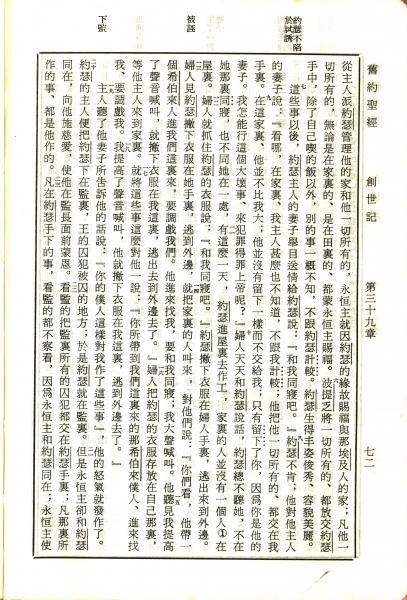 舊約聖經　創世記　第三十九章　七二
從主人派約瑟管理他的家和他一切所有的，永恆主就因約瑟的緣故賜福與那埃及人的家；凡他一
切所有的，無論是在家裏的、是在田裏的、都蒙永恆主賜福。波提乏將一切所有的、都放交約瑟
手中，除了自己喫的飯以外，別的事一概不知，不跟約瑟計較。約瑟生得丰姿俊秀、容貌美麗。
約瑟不陷
於試誘
這些事以後，約瑟主人的妻子舉目送情給約瑟說：『和我同寢吧。』約瑟不肯；他對他主人
的妻子說：『看哪，在家裏、我主人甚麼也不知道，不跟我計較；他把他一切所有的、都交在我
手裏。在這家裏、他並不比我大；他並沒有留下一樣而不交給我；只有留下了你，因爲你是他的
妻子。我怎能行這個大壞事、來犯罪得罪上帝呢？』婦人天天和約瑟說話，約瑟總不聽她，不在
她那裏同寢，也不同她在一處。有這麼一天，約瑟進屋裏去作工，家裏的人並沒有一個人①在
屋裏。婦人就抓住約瑟的衣服說：『和我同寢吧。』約瑟撇下衣服在婦人手裏，逃出來到外邊。
被誣
婦人見約瑟撇下衣服在她手裏，逃到外邊，就把家裏的人叫來，對他們說：『你們看，他帶一
個希伯來人進我們這裏來，要調戲我們。他進來找我，要和我同寢；我大聲喊叫。他聽見我提高
了聲音喊叫，就撇下衣服在我這裏，逃出去到外邊去了。』婦人把約瑟的衣服存放在自己那裏，
等他主人來到家裏。就將這些事這麼對他一說：『你所帶到我們這裏來的那希伯來僕人、進來找
我、要調戲我。我提高了聲音喊叫，他就撇下衣服在我這裏，逃到外邊去了。』
下監
主人聽了他妻子所告訴他的話說：『你的僕人這樣對我作了這些事』，他的怒氣就發作了。
約瑟的主人便把約瑟下在監裏、王的囚犯被囚的地方；於是約瑟就在監裏。但是永恆主卻和約瑟
同在，向他施慈愛，使他在監長面前蒙恩。看監的把監裏所有的囚犯都交在約瑟手裏；凡那裏所
作的事、都是他作的。凡在約瑟手下的事，看監的都不察看，因爲永恆主和約瑟同在；永恆主使